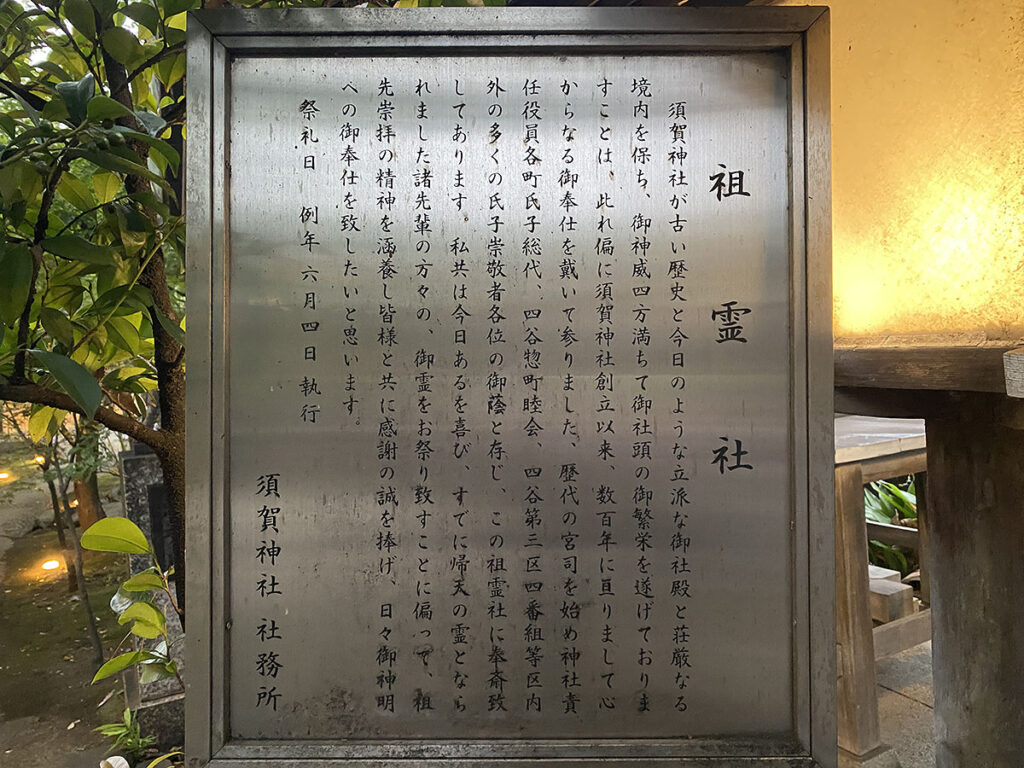 祖霊社
須賀神社が古い歴史と今日のような立派な御社殿と荘厳なる
境内を保ち、御神威四方満ちて御社頭の御繁栄を遂げておりま
すことは、此れ偏に須賀神社創立以来、数百年に亘りまして心
からなる御奉仕を戴いて参りました、歴代の宮司を始め神社責
任役員各町氏子総代、四谷惣町睦会、四谷第三区四番組等区内
外の多くの氏子崇敬者各位の御蔭と存じ、この祖霊社に奉斎致
してあります。私共は今日あるを喜び、すでに帰天の霊となら
れました諸先輩の方々の、御霊をお祭り致すことに偏って、祖
先崇拝の精神を涵養し皆様と共に感謝の誠を捧げ、日々御神明
への御奉仕を致したいと思います。
祭礼日 例年六月四日執行
須賀神社 社務所